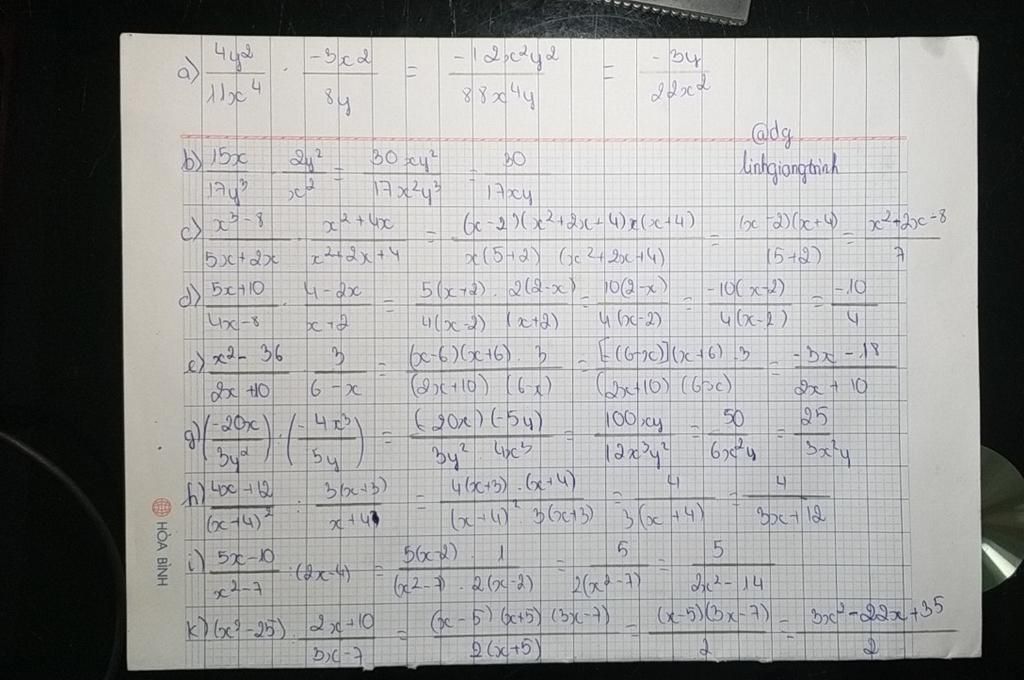 a) 4y²/11x⁴ · -3x2/8y = -12x²y2/88x⁴y = -3y/22x²
@dg
linhgiangtrinh
b) 15x/17y³ · 2y²/x² = 30xy²/17x²y³ = 30/17xy
c) x³-8/5x+2x · x²+4x/x²+2x+4 = (x-2)(x²+2x+4)x(x+4)/x(5+2)(x²+2x+4) = (x-2)(x+4)/(5+2) = x²+2x-8/7
d) 5x+10/4x-8 · 4-2x/x+2 = 5(x+2) · 2(2-x)/4(x-2)(x+2) = 10(2-x)/4(x-2) = -10(x-2)/4(x-2) = -10/4
e) x²-36/2x+10 · 3/6-x = (x-6)(x+6) · 3/(2x+10)(6-x) = [-(6-x)](x+6) · 3/(2x+10)(6-x) = -3x-18/2x+10
g) (-20x/3y²) : (-4x³/5y) = (-20x)(-5y)/3y² · 4x³ = 100xy/12x³y² = 50/6x²y = 25/3x²y
h) 4x+12/(x+4)² : 3(x+3)/x+4 = 4(x+3) · (x+4)/(x+4)² · 3(x+3) = 4/3(x+4) = 4/3x+12
i) 5x-10/x²-7 : (2x-4) = 5(x-2) · 1/(x²-7) · 2(x-2) = 5/2(x²-7) = 5/2x²-14
k) (x²-25) : 2x+10/3x-7 = (x-5)(x+5)(3x-7)/2(x+5) = (x-5)(3x-7)/2 = 3x²-22x+35/2
HÒA BÌNH